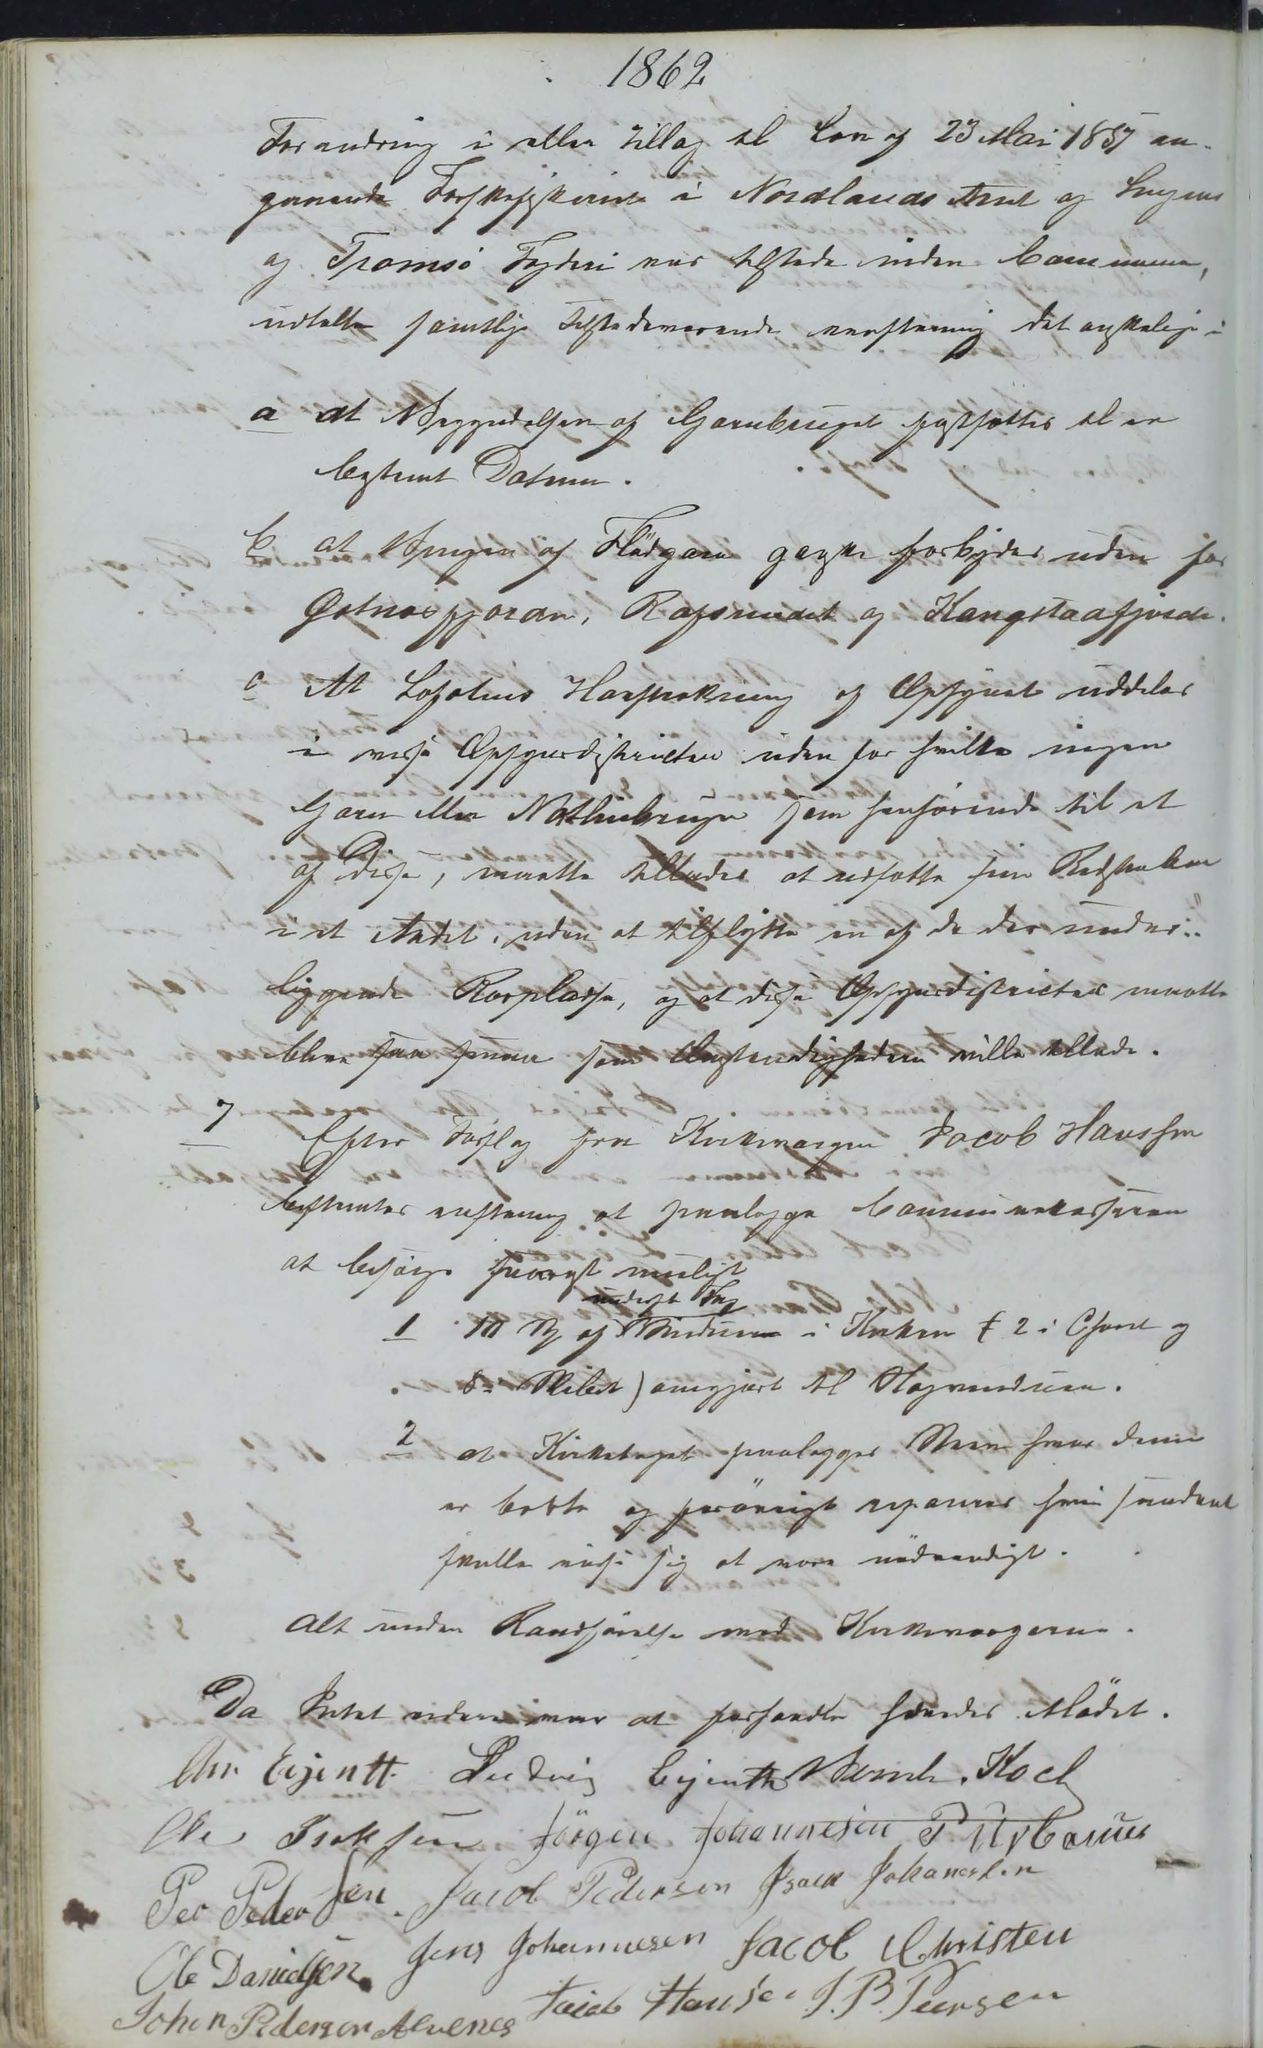 1862
Forandring i eller Tillæg til Lov af 23 Mai 1857 an-
gaaende Torskefiskeriet i Nordlands Amt og Senjens
og Tromsö Fogderi var tilstede inden Communen,
udtalte samtlige Tilstedeværende eenstemmig det ønskelige i
a at Begyndelsen af Garnbruget fastsættes til en
bestemt Datum.
b at Brugen af Flødgarn ganske forbydes uden for
Østnæsfjorden, Raftsundet og Kangstadfjorden.
c At Lofotens Havstrækning og Opsynet uddeles
i visse Opsynsdistricter uden for hvilke ingen
Garn eller Nathlinebruger som henhörende til et
af disse, maatte tillades at udsætte sine Redskaber
i et Andet, uden at tilflytte en af de der under-
liggende Rorpladse, og at disse Opsynsdistricter maatte
blive saa smaa som Omstændighederne ville tillade.
7 Efter Forslag fra Kirkeværgen Jacob Hanssen
besluttedes eenstemmig at paalægge Communekassereren
at besörge snarest muligt
nederste Fag
1 10 St af Vinduerne i Kirken (2 i Choret og
8 i Skibet) omgjort til Hagevinduer.
2 at Kirketaget paalægges Steen hvor denne
er borte og forövrigt repareres hvis saadant
skulle vise sig at være nödvendigt.
Alt under Raadförelse med Kirkeværgerne.
Da Intet videre var at forhandle hævedes Mödet.
Chr Ejentt. Ludvig Ejentt Bernh. Koch
Ole Isaksen Jörgen Johannesen P Urbanus
Per Pedersen. Jacob Pedersen Isack Johanesen
Ole Danielsen. Jens Johannesen Jacob Christen
Johan Pedersen Alvenes Jacob Hansen J. B. Pedersen